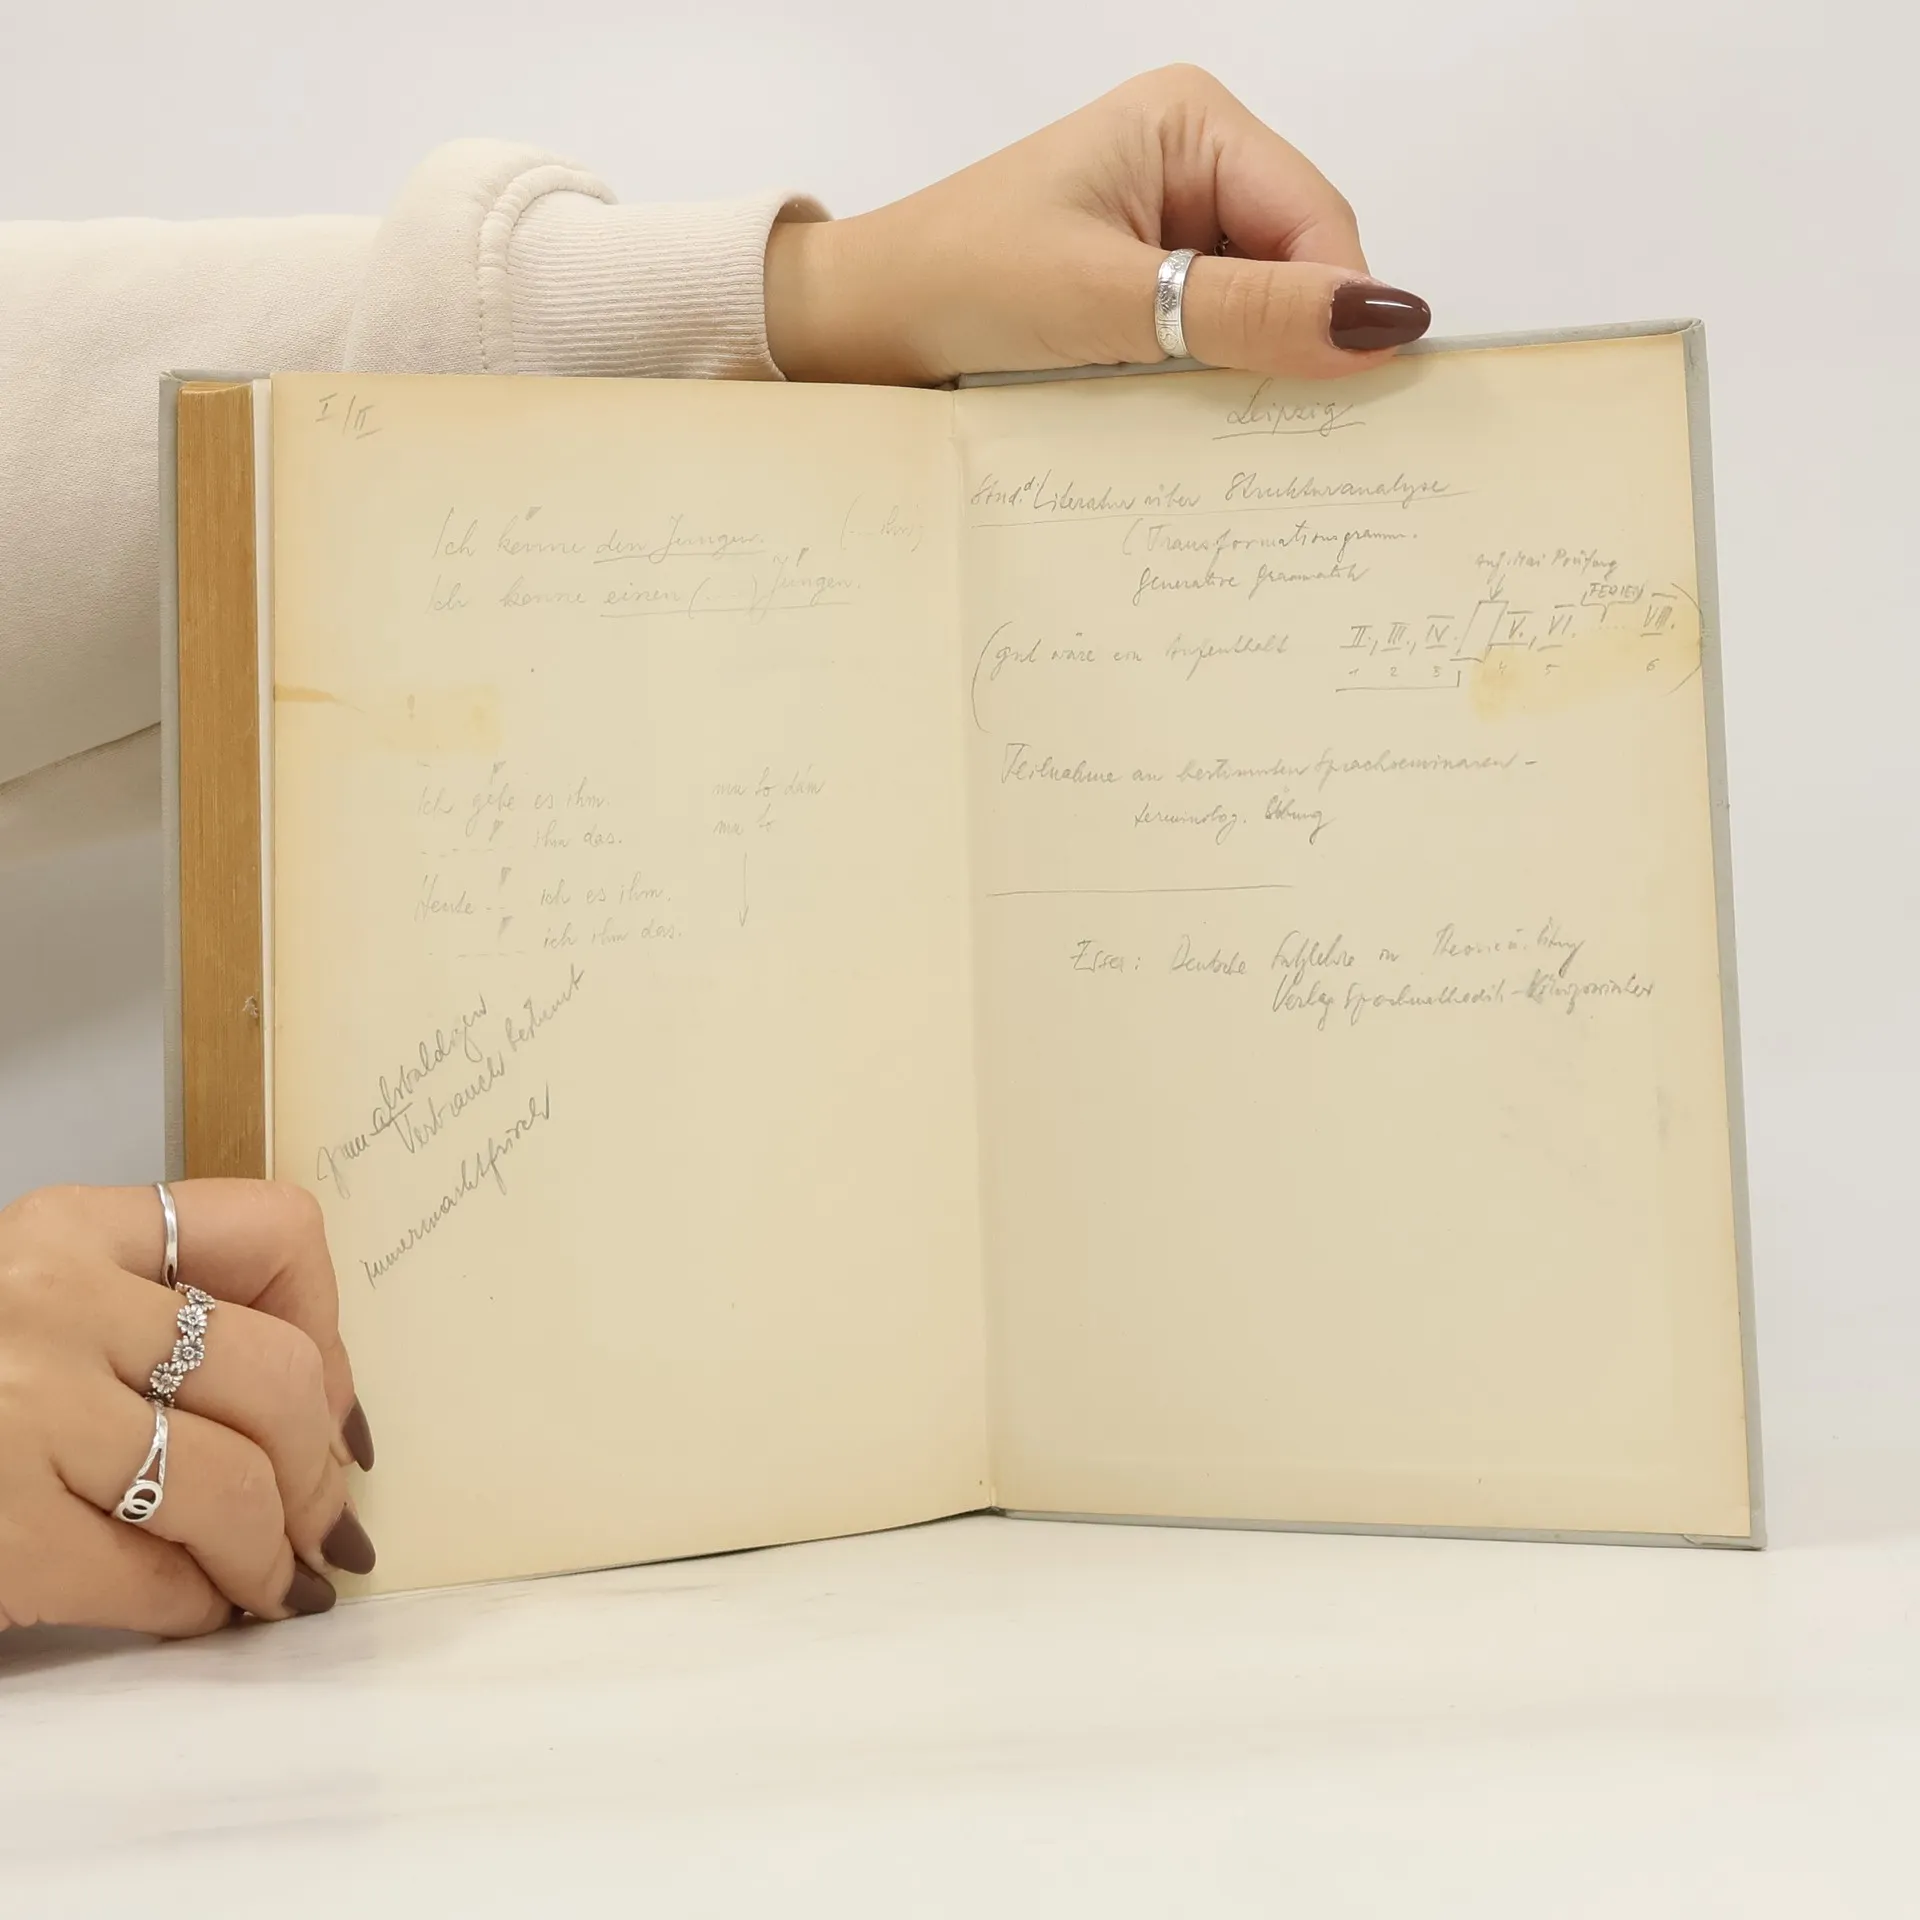 I/II
Ich kenne den Jungen.
Ich kenne einen (....) Jungen.
!
Ich gebe es ihm.
ihm das.
Heute -- ich es ihm.
ich ihm das.
mu to dám
mu to
zum alsbaldigen
Verbrauch bestimmt
immermarktfrisch
Leipzig
Stud. d. Literatur über Strukturanalyse
(Transformationsgramm.
generative Grammatik
Anf. Mai Prüfung
FERIEN
(gut wäre ein Aufenthalt II., III., IV. V., VI. .... VIII.)
1 2 3 4 5 6
Teilnahme an bestimmten Sprachseminaren -
terminolog. Übung
Deutsche Satzlehre in Theorie u. Übung
Verlag Sprachmethodik - Königswinter